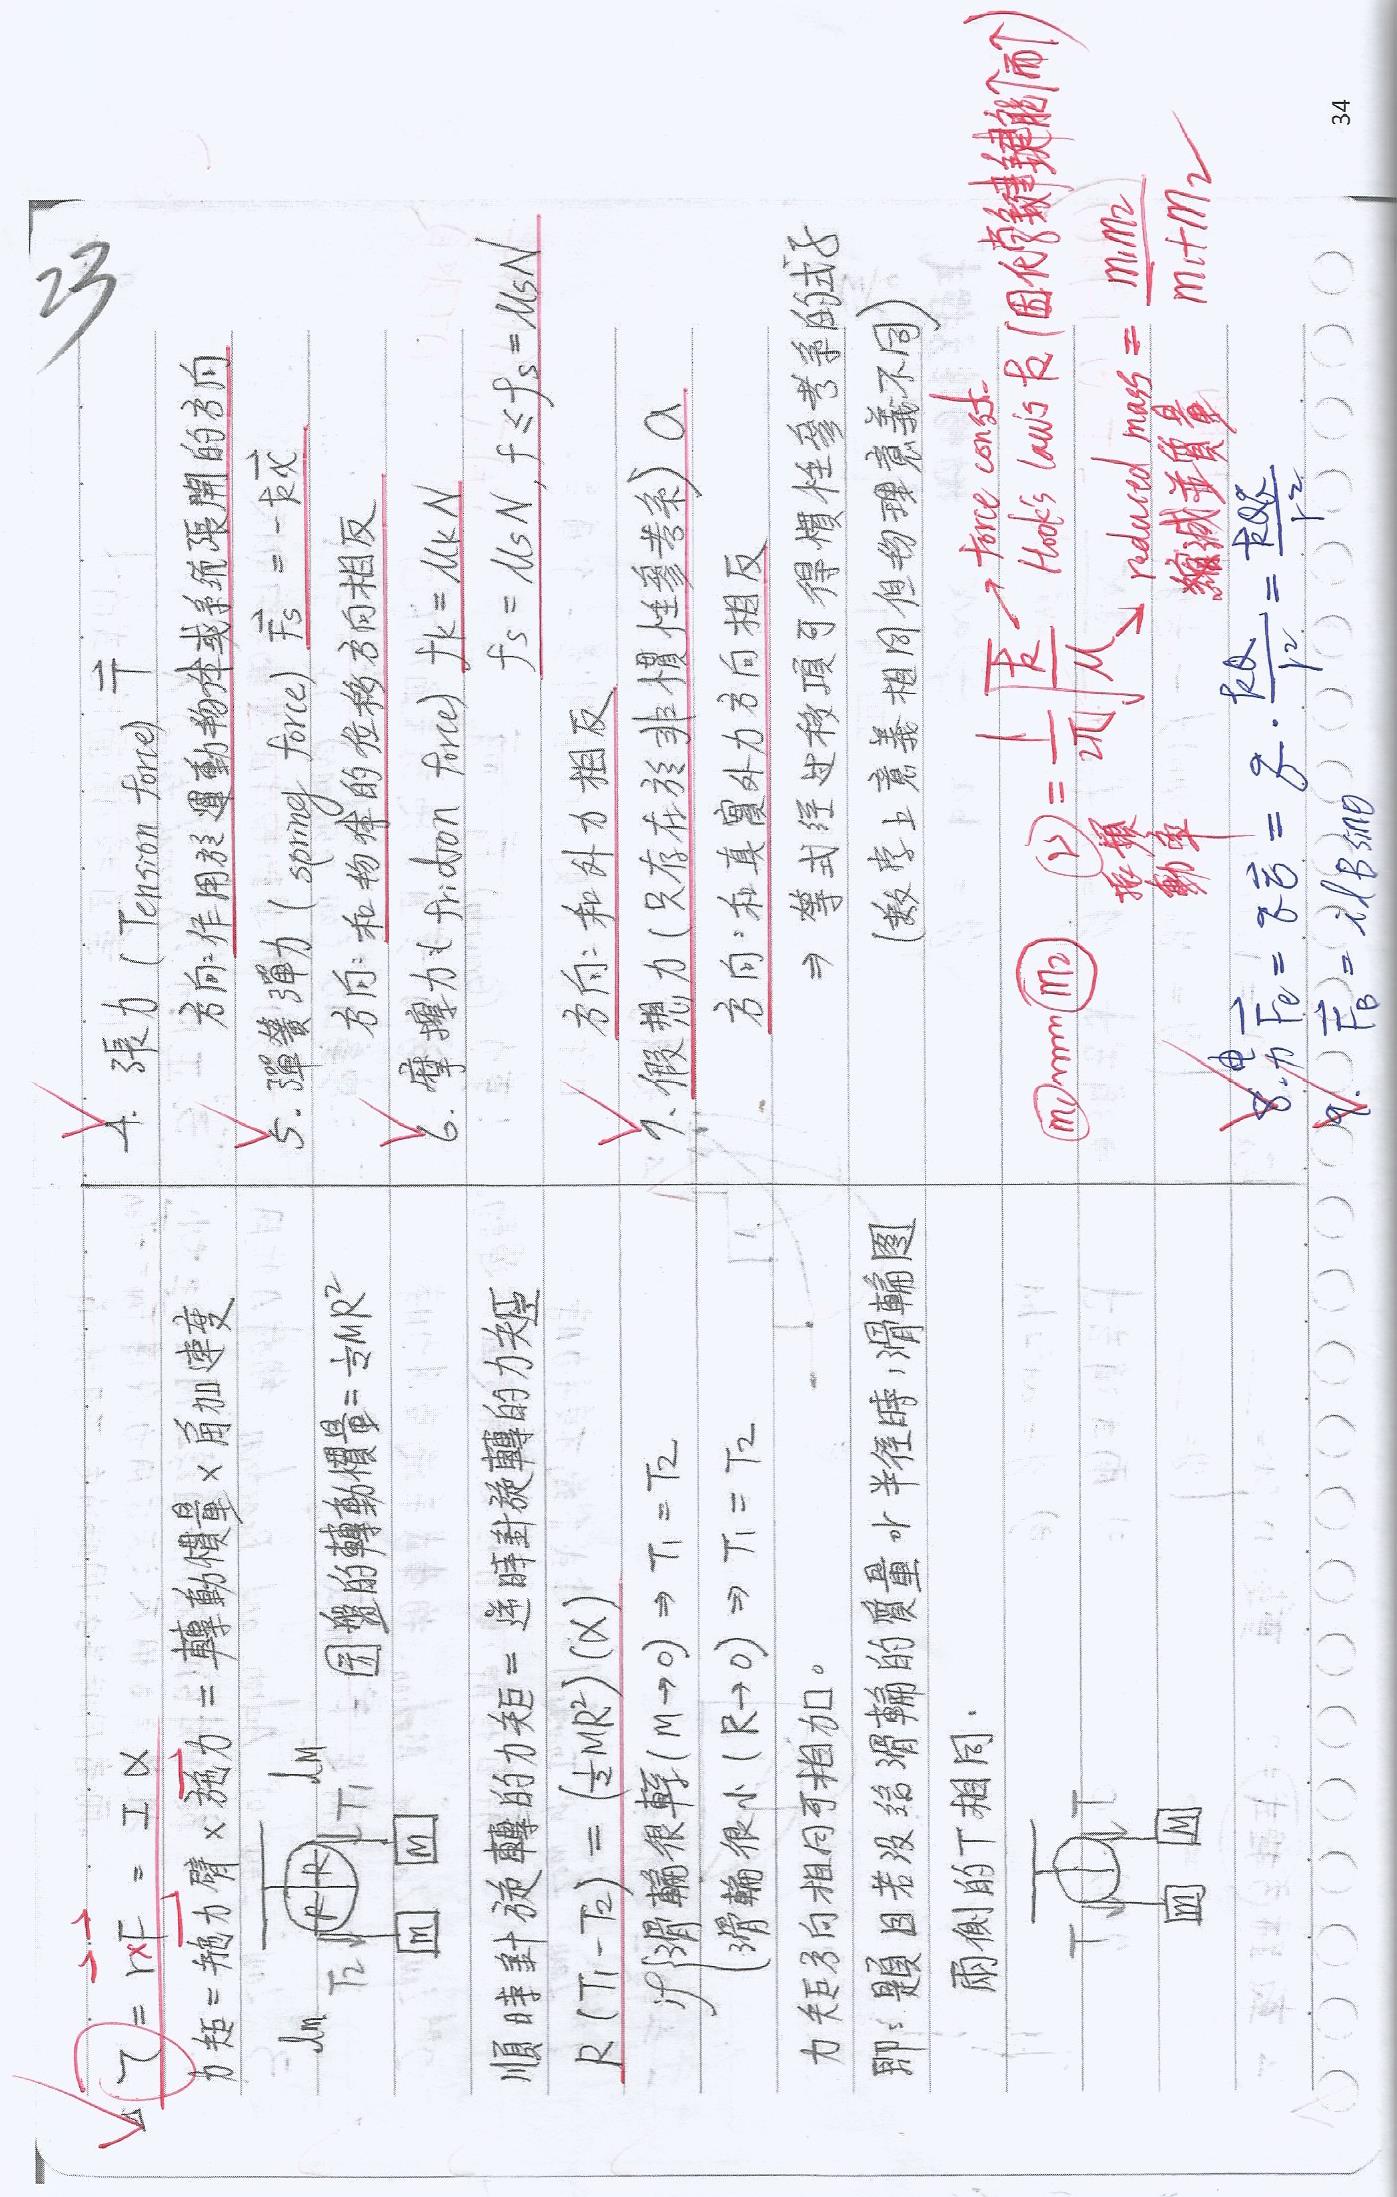 23
△ τ = r×F = I α
力矩 = 施力臂 × 施力 = 轉動慣量 × 角加速度
R R
T2 T1
m M
圓盤的轉動慣量 = ½MR²
順時針旋轉的力矩 = 逆時針旋轉的力矩
R (T1 - T2) = (½MR²) (α)
if 滑輪很輕 (M→0) ⇒ T1 = T2
滑輪很小 (R→0) ⇒ T1 = T2
力矩方向相同可相加。
即:題目若沒給滑輪的質量 or 半徑時,滑輪圖
兩側的T相同.
T T
m M
4. 張力 (Tension force) T
方向:作用於運動物体或系統張開的方向
5. 彈簧彈力 (spring force) Fs = -kx
方向:和物体的位移方向相反
6. 摩擦力 (friction force) fk = μkN
fs = μsN , f ≤ fs = μsN
方向:和外力相反
7. 假想力 (只存在於非慣性參考系) a
方向:和真實外力方向相反
⇒ 等式经过移項可得慣性參考系的式子
(数学上意義相同但物理意義不同)
m1 m2 ν = 1/2π √k/μ → force const.
Hook's law's k (因化学鍵鍵能↑而↑)
振動頻率
→ reduced mass = m1m2/m1+m2
縮減並質量
8. 电力 Fe = qE = q · kQ/r² = kQq/r²
9. FB = ilB sinθ
34